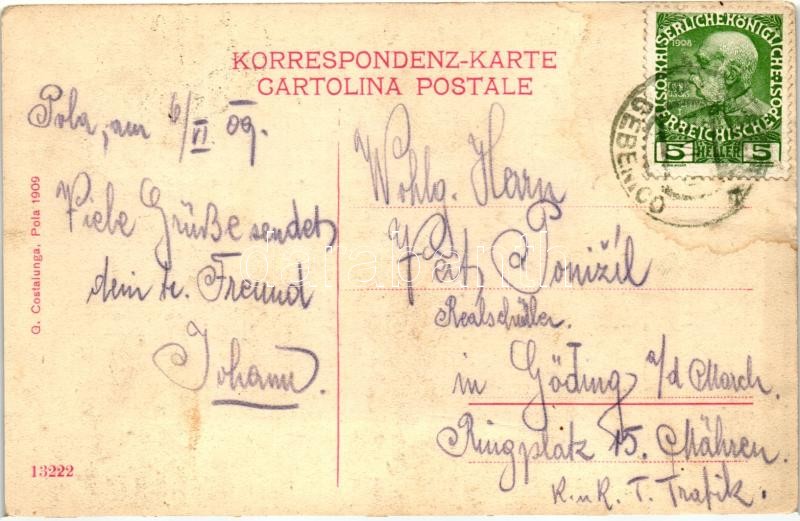 KORRESPONDENZ-KARTE
CARTOLINA POSTALE
Pola, am 6/VI 09.
Viele Grüße sendet
dein tr. Freund
Johann.
Wohlg. Herrn
Veit Ponižil
Realschüler.
in Göding a/d March.
Ringplatz 15. Mähren.
K. u K. T. Trafik.
G. Costalunga, Pola 1909
13222
KAISERLICHE KÖNIGLICHE ÖSTERREICHISCHE POST
1908
5 HELLER 5
darabanth